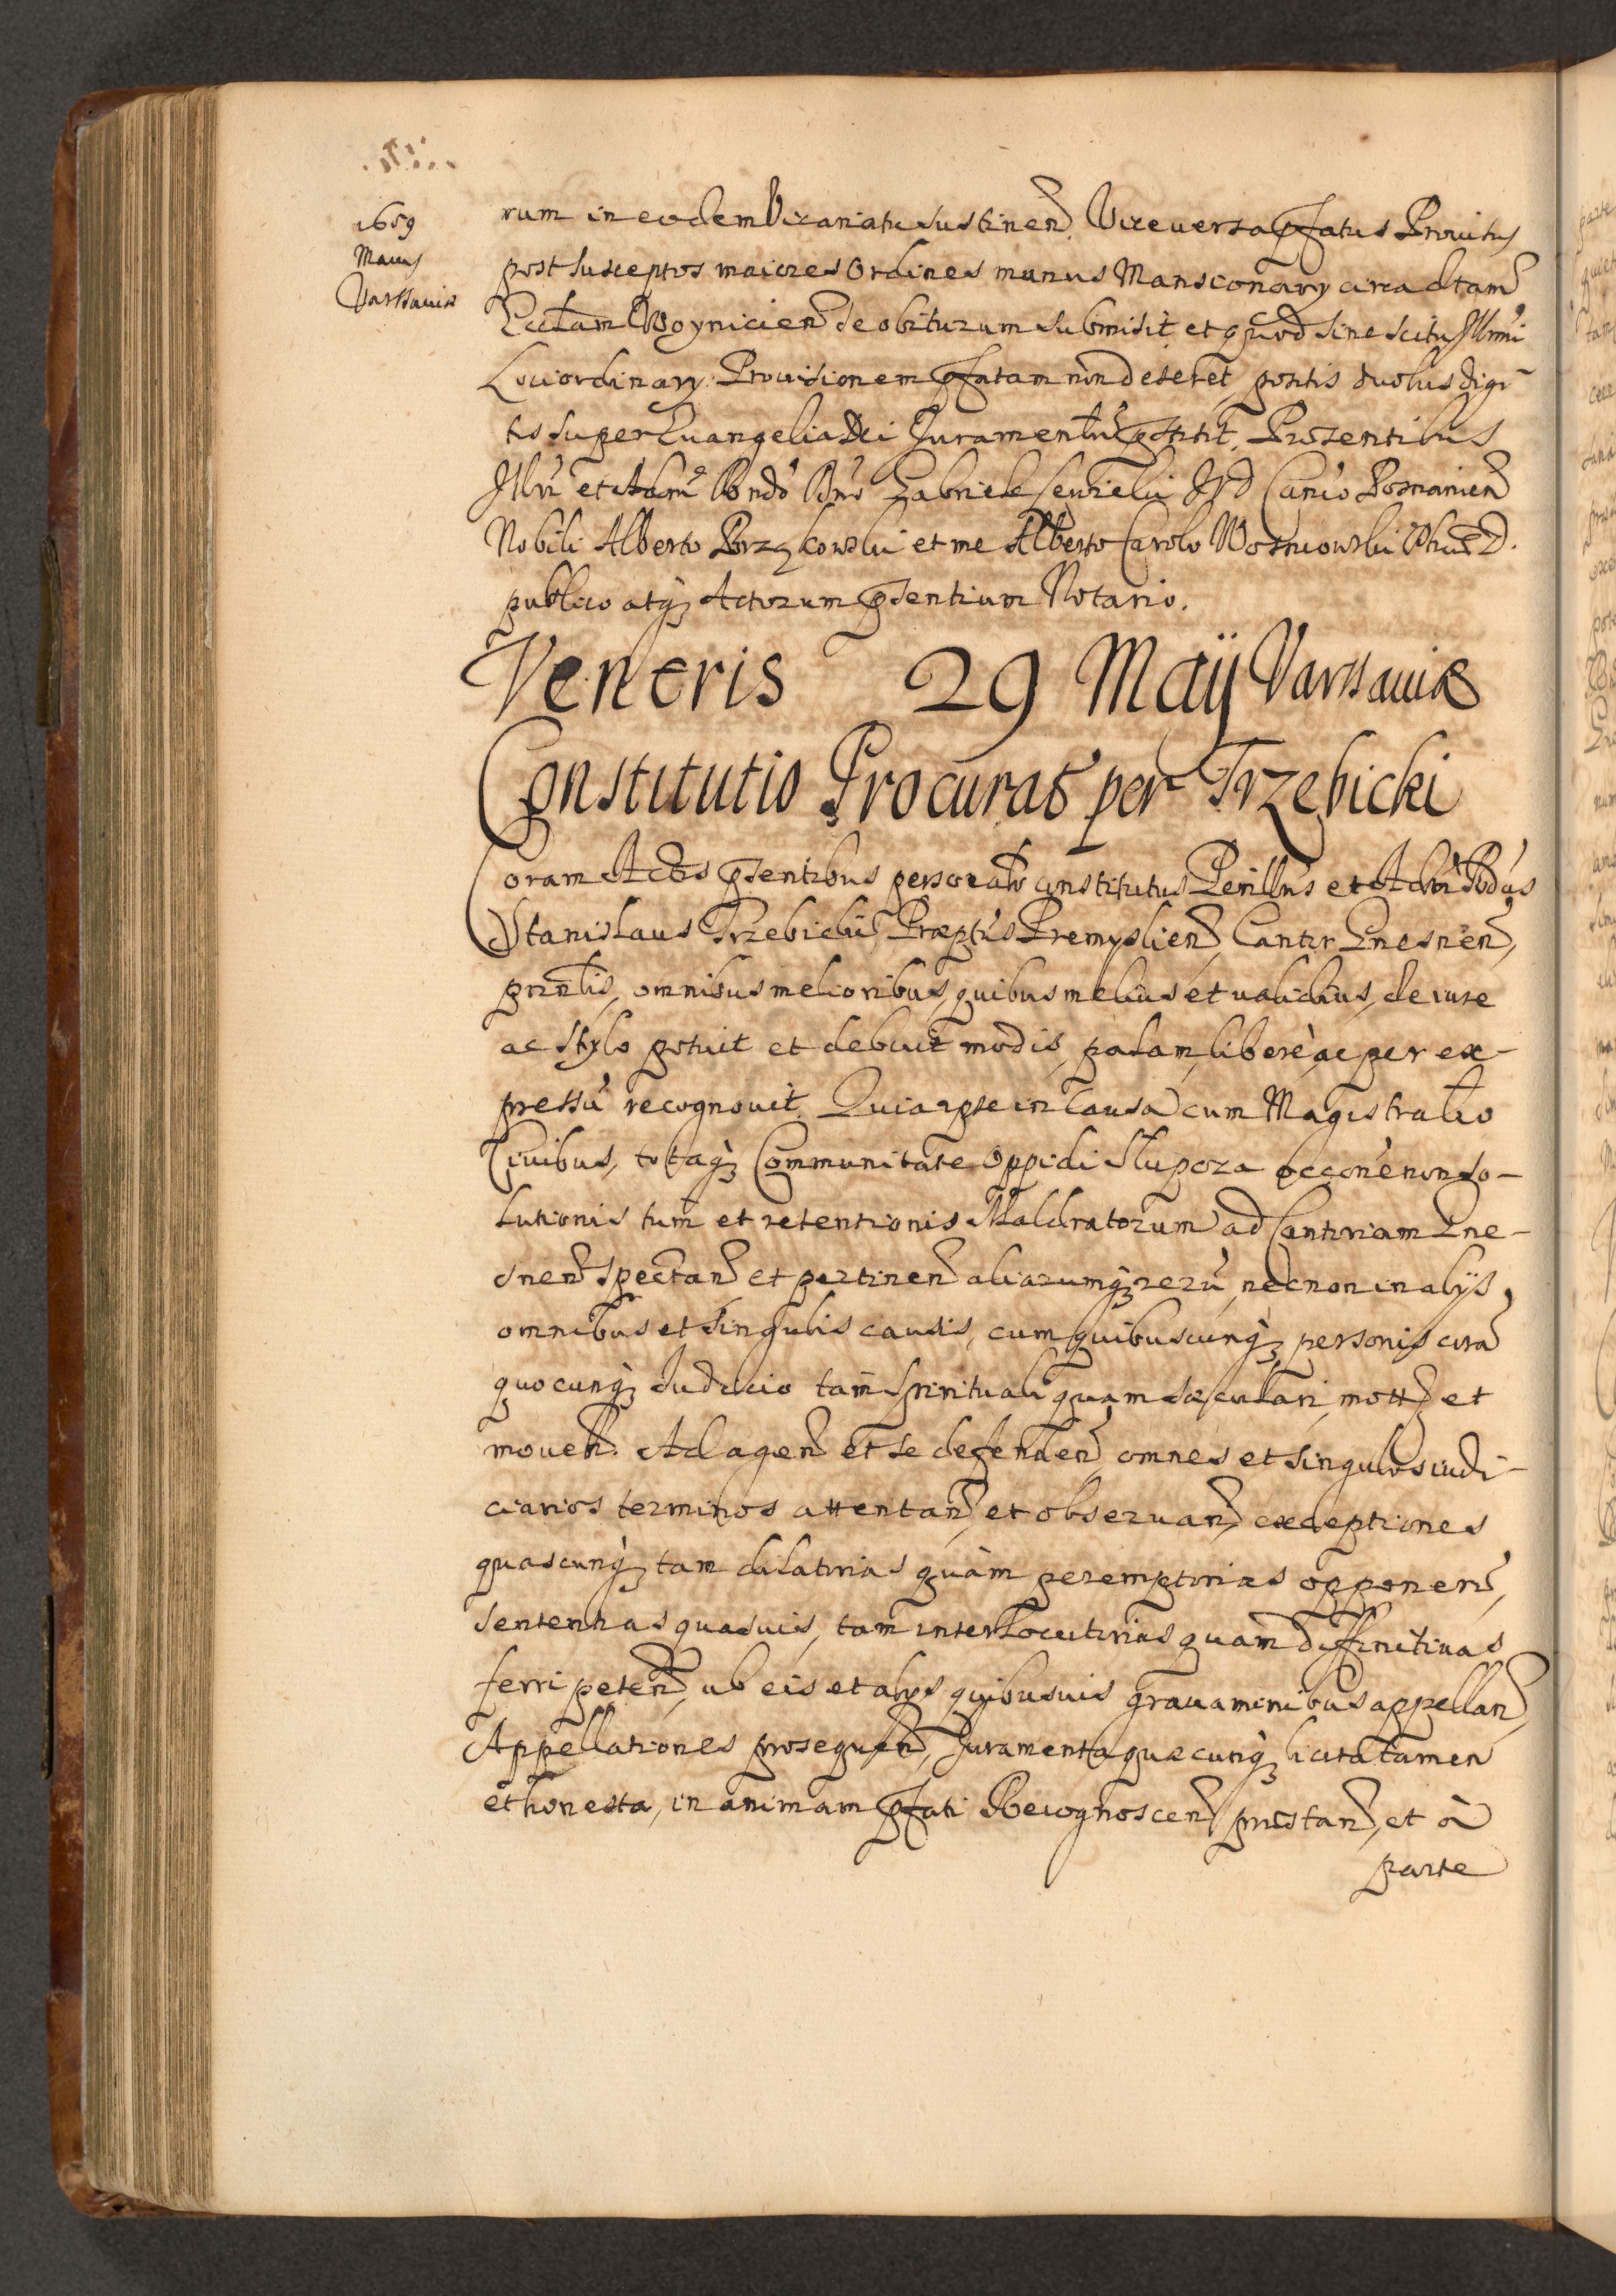 1659
Maius
Varssauiæ
rum in eodem Vicariatu sustinen. Vice uersa pfatus Prouitus
post susceptos maiores Ordines munus Mansconary circa dtam
Ecctam Woynicien se obiturum submisit et quod sine scitu Illmi
Loci ordinary Prouisionem pfatam non deseret, positis duobus digi-
tis super Euangelia Dei Juramentu pstitit. Præsentibus
Illri et Adm Rndo Dno Gabriele Canco Posnanien
Nobili Alberto et me Alberto Carolo
publico atq Actorum psentium Notario.
Veneris 29 Maij Varssauiæ
Constitutio Procurat per Trzebicki
Coram Actis psentibus personalr constitutus Perillris et Adm Rndus
Stanislaus Trzebicki, Præptus Premyslien, Cantor Gnesnen,
prntis, omnibus melioribus, quibus melius et ualidius, de iure
ac stylo potuit et debuit modis, palam, liberè, ac per ex-
pressu recognouit. Quia ipse in Causa cum Magistratu
Ciuibus, totaq Communitate Oppidi Slupcza occone non so-
lutionis tum et retentionis Maldratorum ad Cantoriam Gne-
snen spectan et pertinen aliarumq reru, necnon in alijs
omnibus et singulis causis, cum quibuscunq personis cora
quocunq Judicio tam spirituali quam sæculari, mott et
mouen. Ad agen et se defenden, omnes et singulos iudi-
ciarios terminos attentan, et obseruan, exceptiones
quascunq tam dilatorias quàm peremptorias opponen,
sententias quasuis, tam interlocutorias quam diffinitiuas
ferri peten, ab eis et alys quibusuis grauaminibus appellan,
Appellationes prosequen, Juramenta quæcunq licita tamen
et honesta, in animam pfati Recognoscen præstan, et à
parte